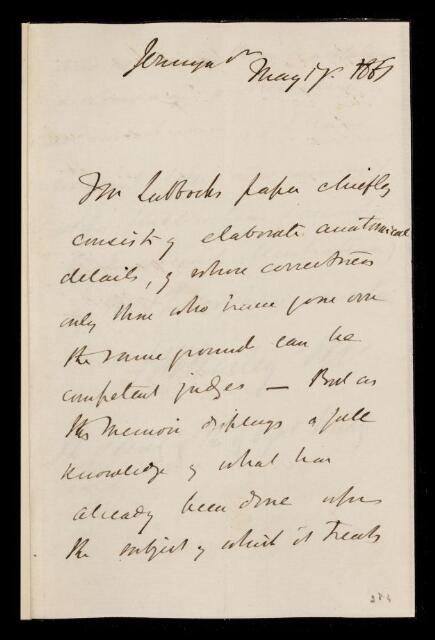 Jermyn St
May 17. 1861
Mr Lubbocks paper chiefly
consists of elaborate anatomical
details, of whose correctness
only those who have gone over
the same ground can be
competent judges — But as
this memoir displays a full
knowledge of what has
already been done upon
the subject of which it treats
284